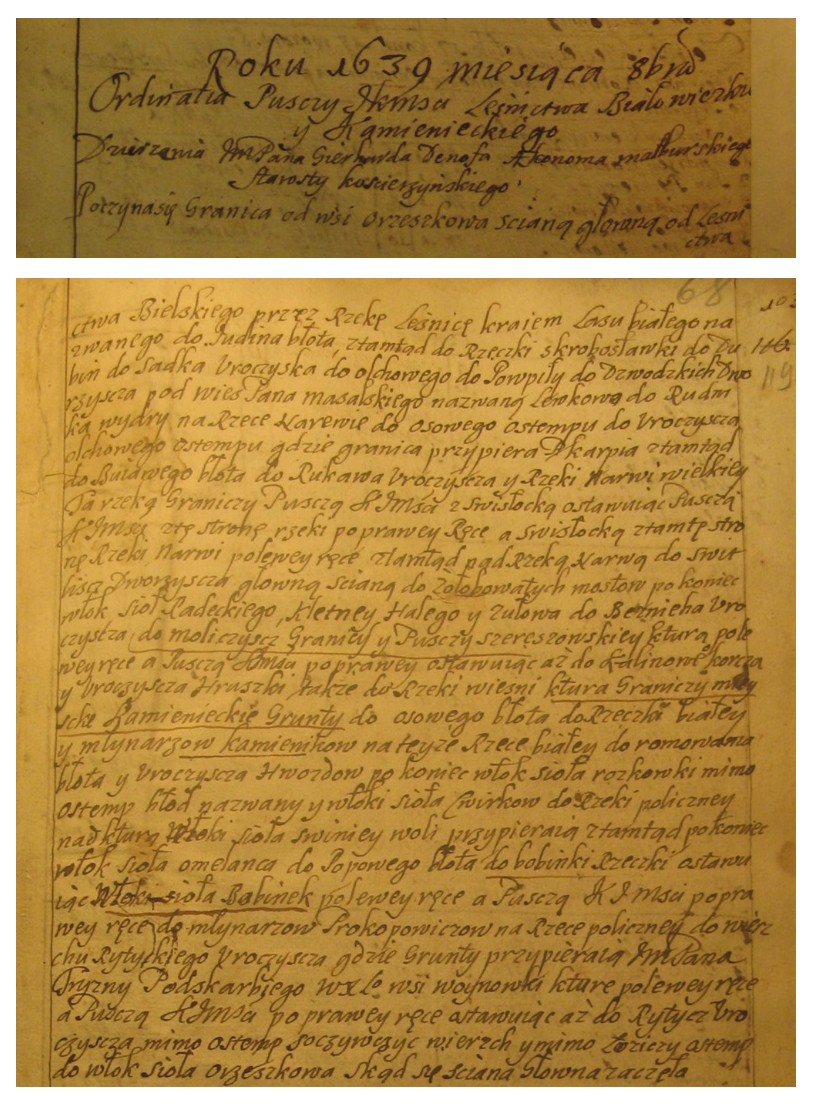 Roku 1639 miesiąca 8bra
Ordinatia Pusczy JKMsci Leśnictwa Białowiezku
y Kamienieckiego
Dzierzenia JmPana Gierharda Denofa Ekonoma malburskiego
Starosty koscierzyńskiego
Poczynasię Granica od wsi Orzeszkowa scianą głowną od Leśni
ctwa
68 103
ctwa Bielskiego przez Rzekę Leśnicę kraiem Lasu białego na
zwanego do Judina błota, ztamtąd do Rzeczki skrobosławki do Du 116.
bin do Sadka Uroczyska do olchowego do Powpiły do Dzwodzkich Dwo 119
rzyscza pod wies Pana masalskiego nazwaną Lewkowo do Rudni
ka wydry na Rzece Narewie do osowego ostempu do Uroczyscza
olchowego ostempu gdzie granica przypiera Pkarpia ztamtąd
do Buiawego błota do Rukawa Uroczyscza y Rzeki Narwi wielkiey
Ta rzeką Graniczy Pusczą KJMsci z swisłocką ostawuiąc Pusczą
KJMsci ztę stronę rzeki po prawey Ręce a swisłocką ztamtę stro
nę Rzeki Narwi polewey ręce ztamtąd nad Rzeką Narwą do swit
liscz Dworzyscza główną scianą do Zołobowatych mostow po koniec
włok sioł Radeckiego, Kletney Halego y Zulowa do Beznieha Uro
czyscza do moliczyscz Granicy y Pusczy szereszowskiey ktura pole
wey ręce a Pusczą KJMsci po prawey ostawuiąc aż do Kalinowe korcza
y Uroczyscza Hruszki także do Rzeki wiesni ktura Graniczy miey
scke Kamienieckie Grunty do osowego błota do Rzeczki białey
y młynarzow kamienikow na teyze Rzece białey do romowania
błota y Uroczyscza Hwozdow po koniec włok sioła rozkowki mimo
ostemp błod nazwany y włoki sioła Cwirkow do Rzeki policzney
nad kturą Włoki sioła swiniey woli przypieraią ztamtąd pokoniec
włok sioła omelanca do Popowego błota do bobinki Rzeczki ostawu
iąc Włoki sioła Babinek polewey ręce a Pusczą KJMsci popra
wey ręce do młynarzow Prokopowiczow na Rzece policzney do wierz
chu Rytyckiego Uroczyscza gdzie Grunty przypieraią JmPana
Tryzny Podskarbiego WXLo wsi woynowki kture polewey ręce
a Pusczą KJMsci po prawey ręce ostawuiąc aż do Rytycz Uro
czyscza mimo ostemp Soczywczyc wierzch y mimo Łoziczy ostemp
do włok sioła Orzeszkowa skąd się sciana Głowna zaczęla